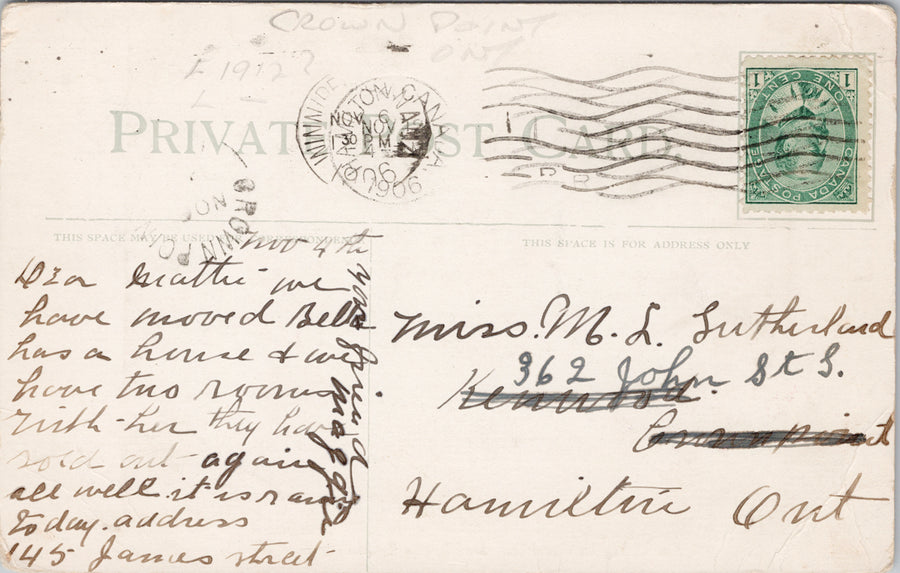 CROWN POINT
ONT
1912?
PRIVATE POST CARD.
NOV 6
NOV
1 30 PM
4
CANADA
1906
ONE CENT
CANADA POSTAGE
1 1
CROWN PO
ON
THIS SPACE MAY BE USED FOR CORRESPONDENCE
THIS SPACE IS FOR ADDRESS ONLY
Nov 4th
Dear Mattie we
have moved Bell
has a house & we
have two rooms
with her they have
sold out again
all well it is rain
to day. address
145 James street
your friend
Maggie
Miss. M. L. Sutherland
362 John St S.
Kenwood
Crown Point
Hamilton Ont